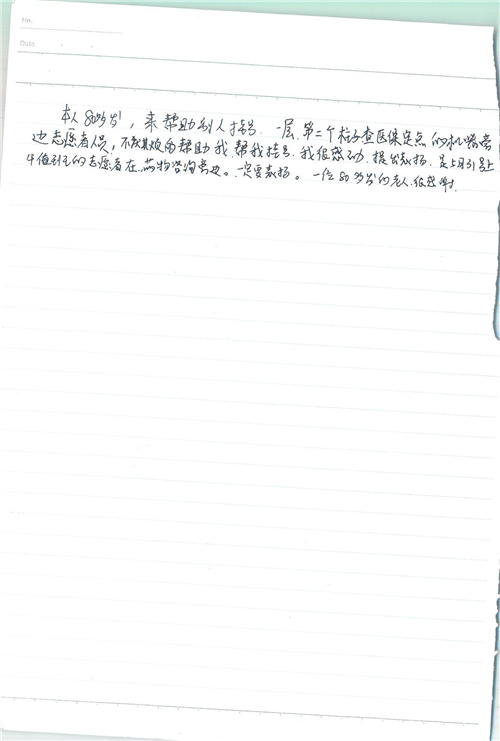 No.
Date
本人80多岁,来帮助别人挂号,一层第二个柱子查医保定点的机器旁
边志愿者人员,不厌其烦的帮助我,帮我挂号,我很感动,提出表扬,是5月31号上
午值班的志愿者在药物咨询旁边。一定要表扬。一位80多岁的老人,很感谢